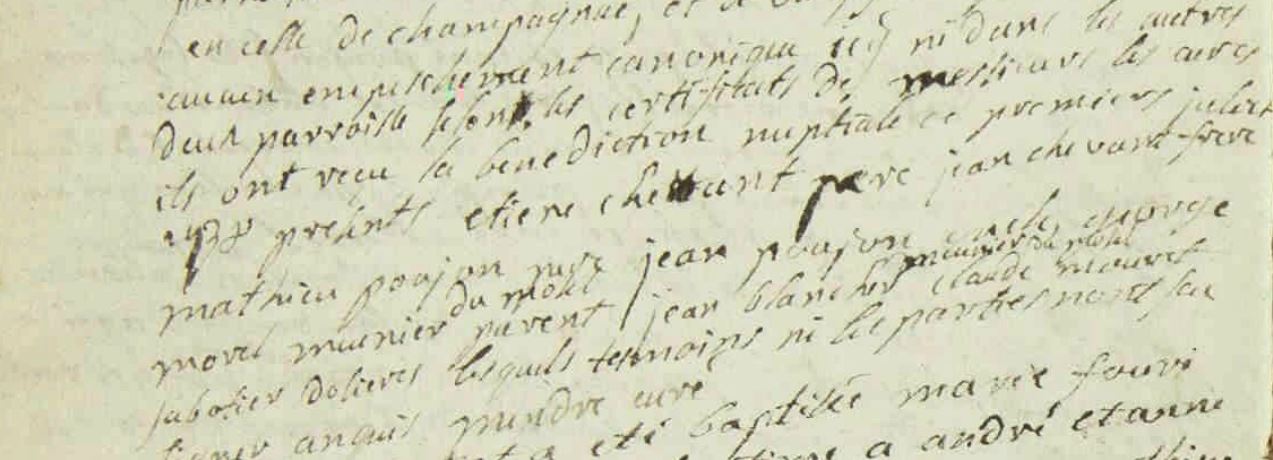 en celle de champagnac, et
aucun empeschement canonique icy ni dans les autres
deux parroisse selont les certificats de messieurs les cures
ils ont recu la benediction nuptiale ce premiers juliet
presents etiene chevant pere jean chevant frere
mathieu poujon pere jean poujon oncle george
morel meunier du mohl parent jean blanchet meunier du mohl claude mouret
sabotier dolieres lesquels temoins ni les parties nont seu
signer enquis mindre curé
a eté baptisée marie fouri
a andré et anne